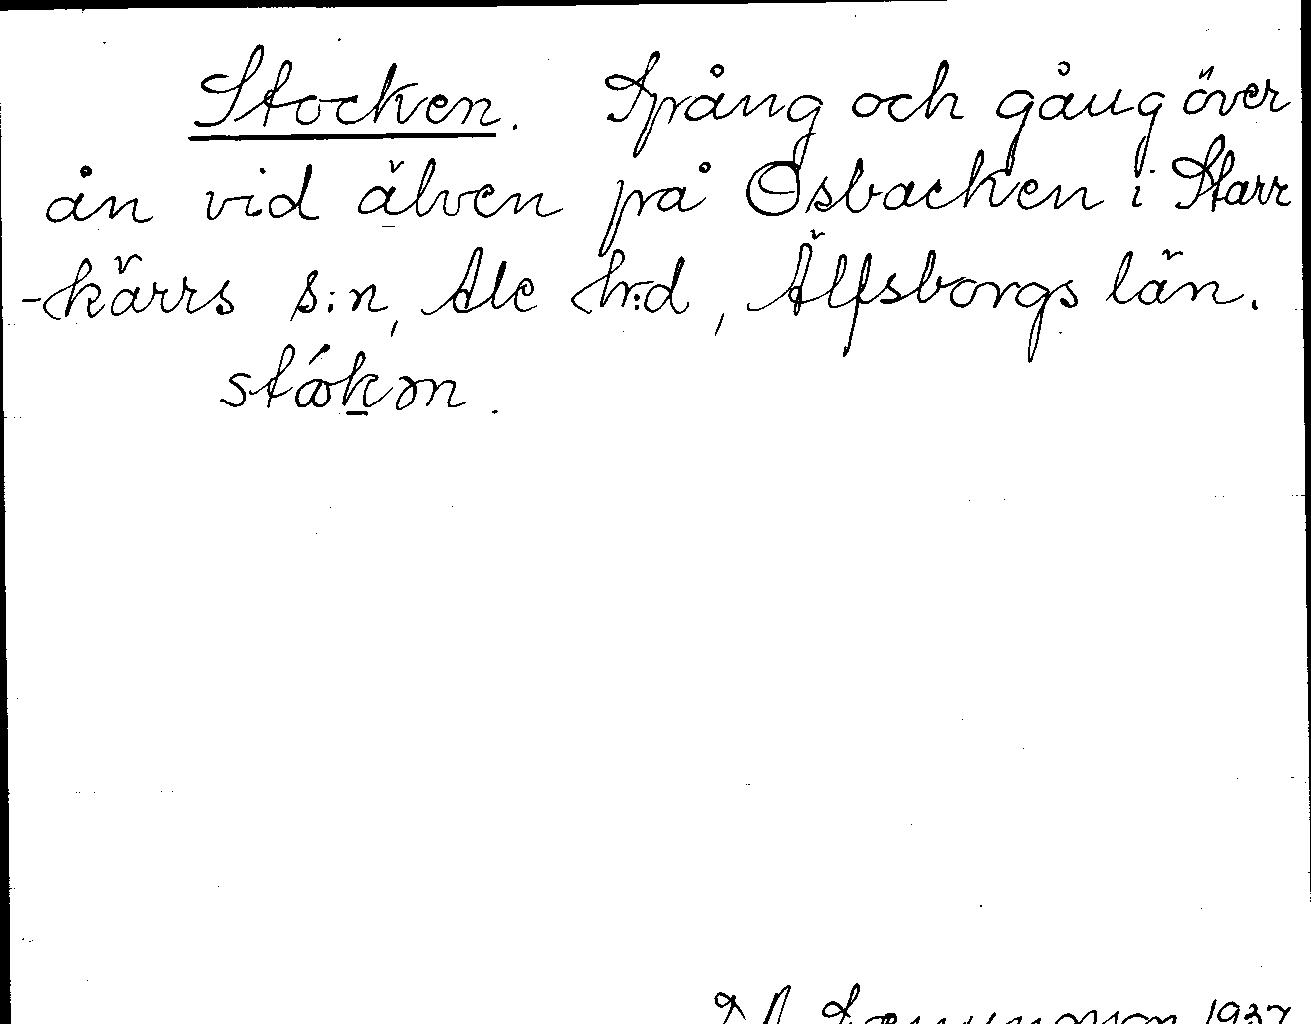 Stocken. Spång och gång över
ån vid älven på Osbacken i Starr
-kärrs s:n, Ale h:d, Älfsborgs län.
stǻkən.
1937